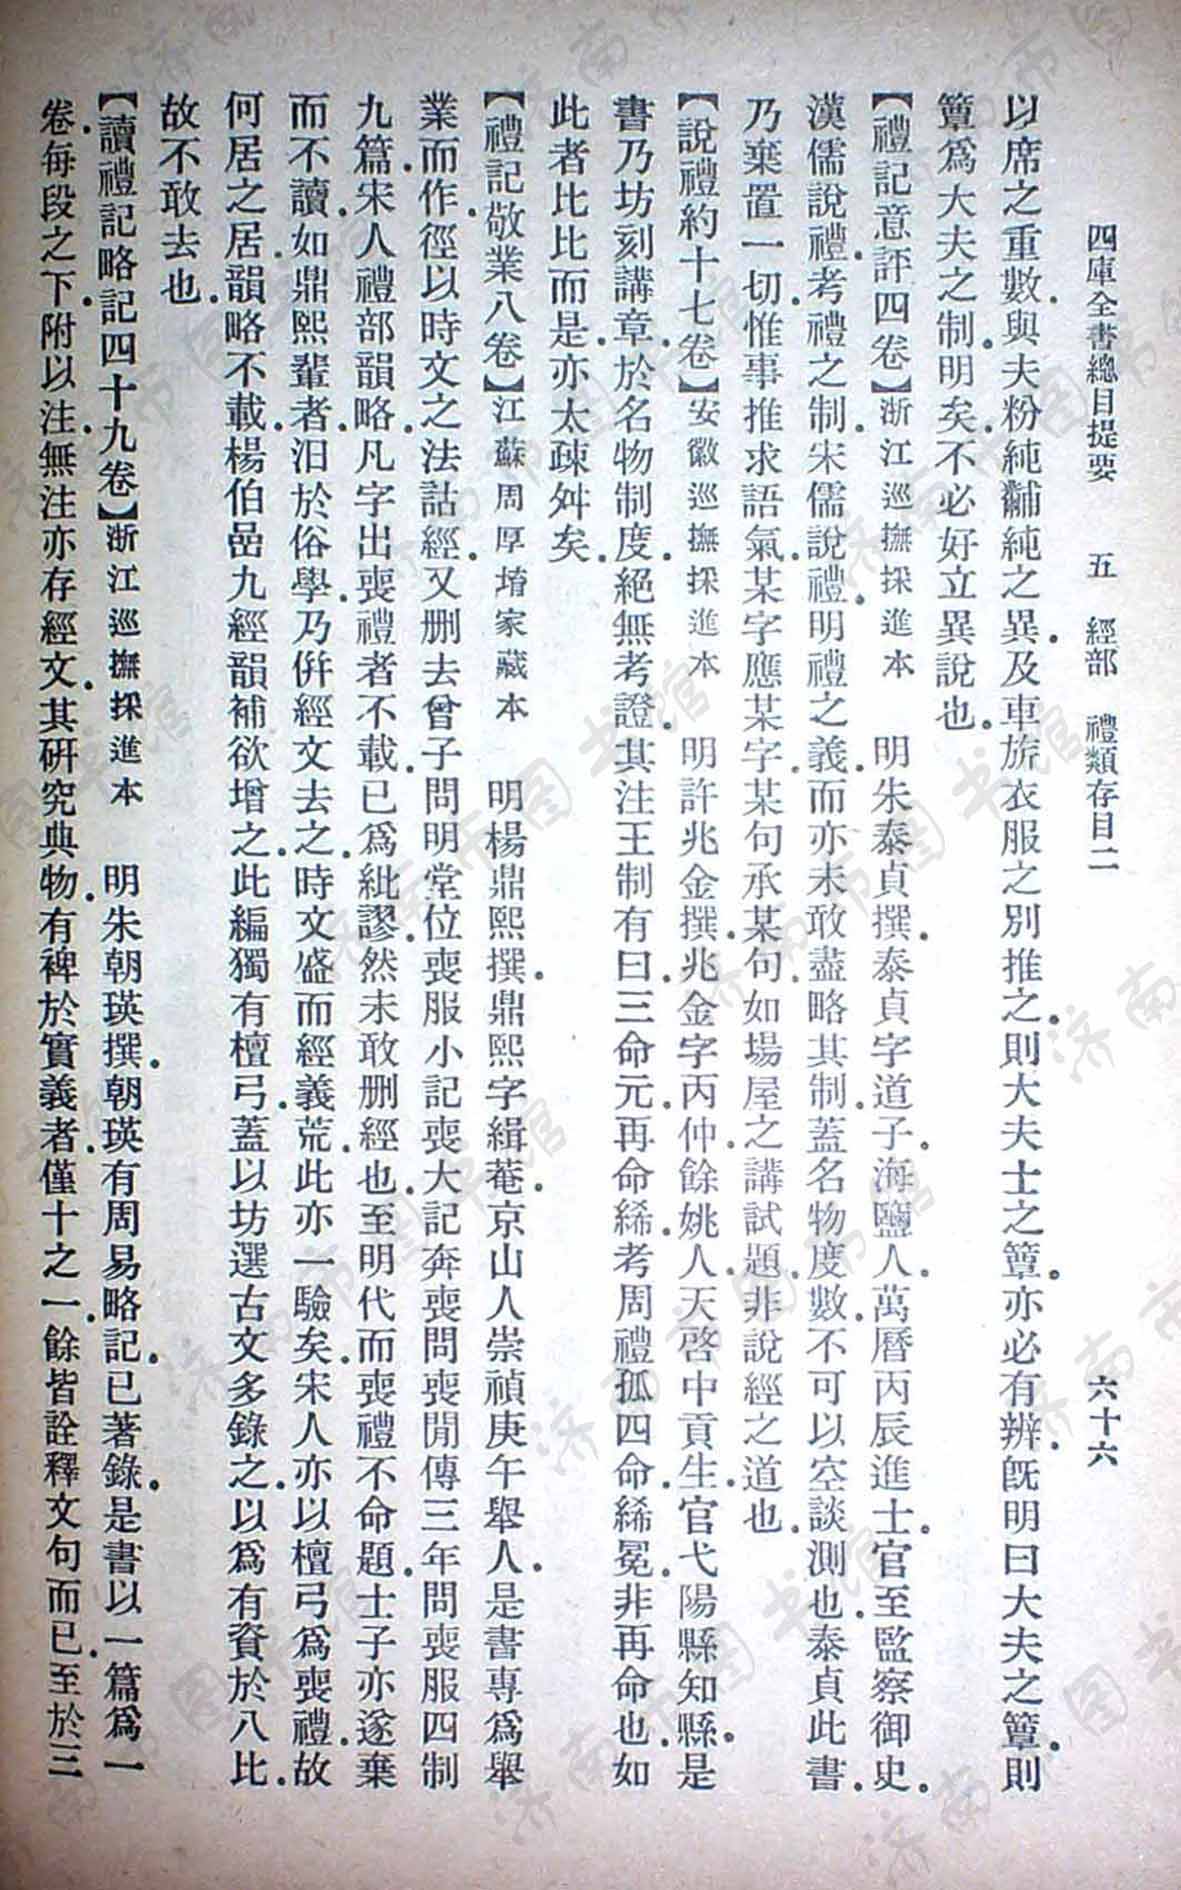 四庫全書總目提要　五　經部　禮類存目二　六十六
以席之重數與夫粉純黼純之異及車旂衣服之別推之則大夫士之簟亦必有辨旣明曰大夫之簟則
簟爲大夫之制明矣不必好立異說也
【禮記意評四卷】浙江巡撫採進本　明朱泰貞撰泰貞字道子海鹽人萬曆丙辰進士官至監察御史
漢儒說禮考禮之制宋儒說禮明禮之義而亦未敢盡略其制蓋名物度數不可以空談測也泰貞此書
乃棄置一切惟事推求語氣某字應某字某句承某句如場屋之講試題非說經之道也
【說禮約十七卷】安徽巡撫採進本　明許兆金撰兆金字丙仲餘姚人天啓中貢生官弋陽縣知縣是
書乃坊刻講章於名物制度絕無考證其注王制有曰三命元再命絺考周禮孤四命絺冕非再命也如
此者比比而是亦太疎舛矣
【禮記敬業八卷】江蘇周厚堉家藏本　明楊鼎熙撰鼎熙字緝菴京山人崇禎庚午舉人是書專爲舉
業而作徑以時文之法詁經又删去曾子問明堂位喪服小記喪大記奔喪問喪閒傳三年問喪服四制
九篇宋人禮部韻略凡字出喪禮者不載已爲紕謬然未敢删經也至明代而喪禮不命題士子亦遂棄
而不讀如鼎熙輩者汨於俗學乃併經文去之時文盛而經義荒此亦一驗矣宋人亦以檀弓爲喪禮故
何居之居韻略不載楊伯嵒九經韻補欲增之此編獨有檀弓蓋以坊選古文多錄之以爲有資於八比
故不敢去也
【讀禮記略記四十九卷】浙江巡撫採進本　明朱朝瑛撰朝瑛有周易略記已著錄是書以一篇爲一
卷每段之下附以注無注亦存經文其研究典物有裨於實義者僅十之一餘皆詮釋文句而已至於三
济南市图书馆